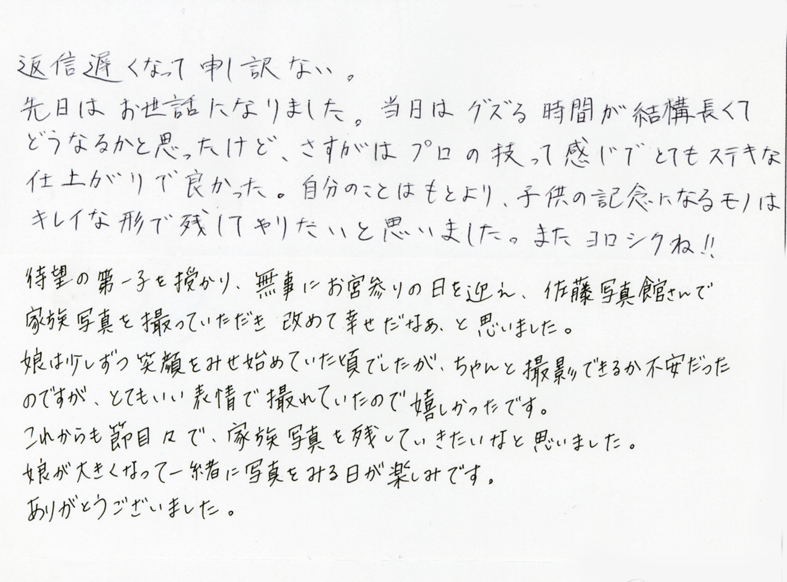 返信遅くなって申し訳ない。
先日はお世話になりました。当日はグズる時間が結構長くて
どうなるかと思ったけど、さすがはプロの技って感じでとてもステキな
仕上がりで良かった。自分のことはもとより、子供の記念になるモノは
キレイな形で残してやりたいと思いました。またヨロシクね!!
待望の第一子を授かり、無事にお宮参りの日を迎え、佐藤写真館さんで
家族写真を撮っていただき改めて幸せだなぁ、と思いました。
娘は少しずつ笑顔をみせ始めていた頃でしたが、ちゃんと撮影できるか不安だった
のですが、とてもいい表情で撮れていたので嬉しかったです。
これからも節目々で、家族写真を残していきたいなと思いました。
娘が大きくなって一緒に写真をみる日が楽しみです。
ありがとうございました。